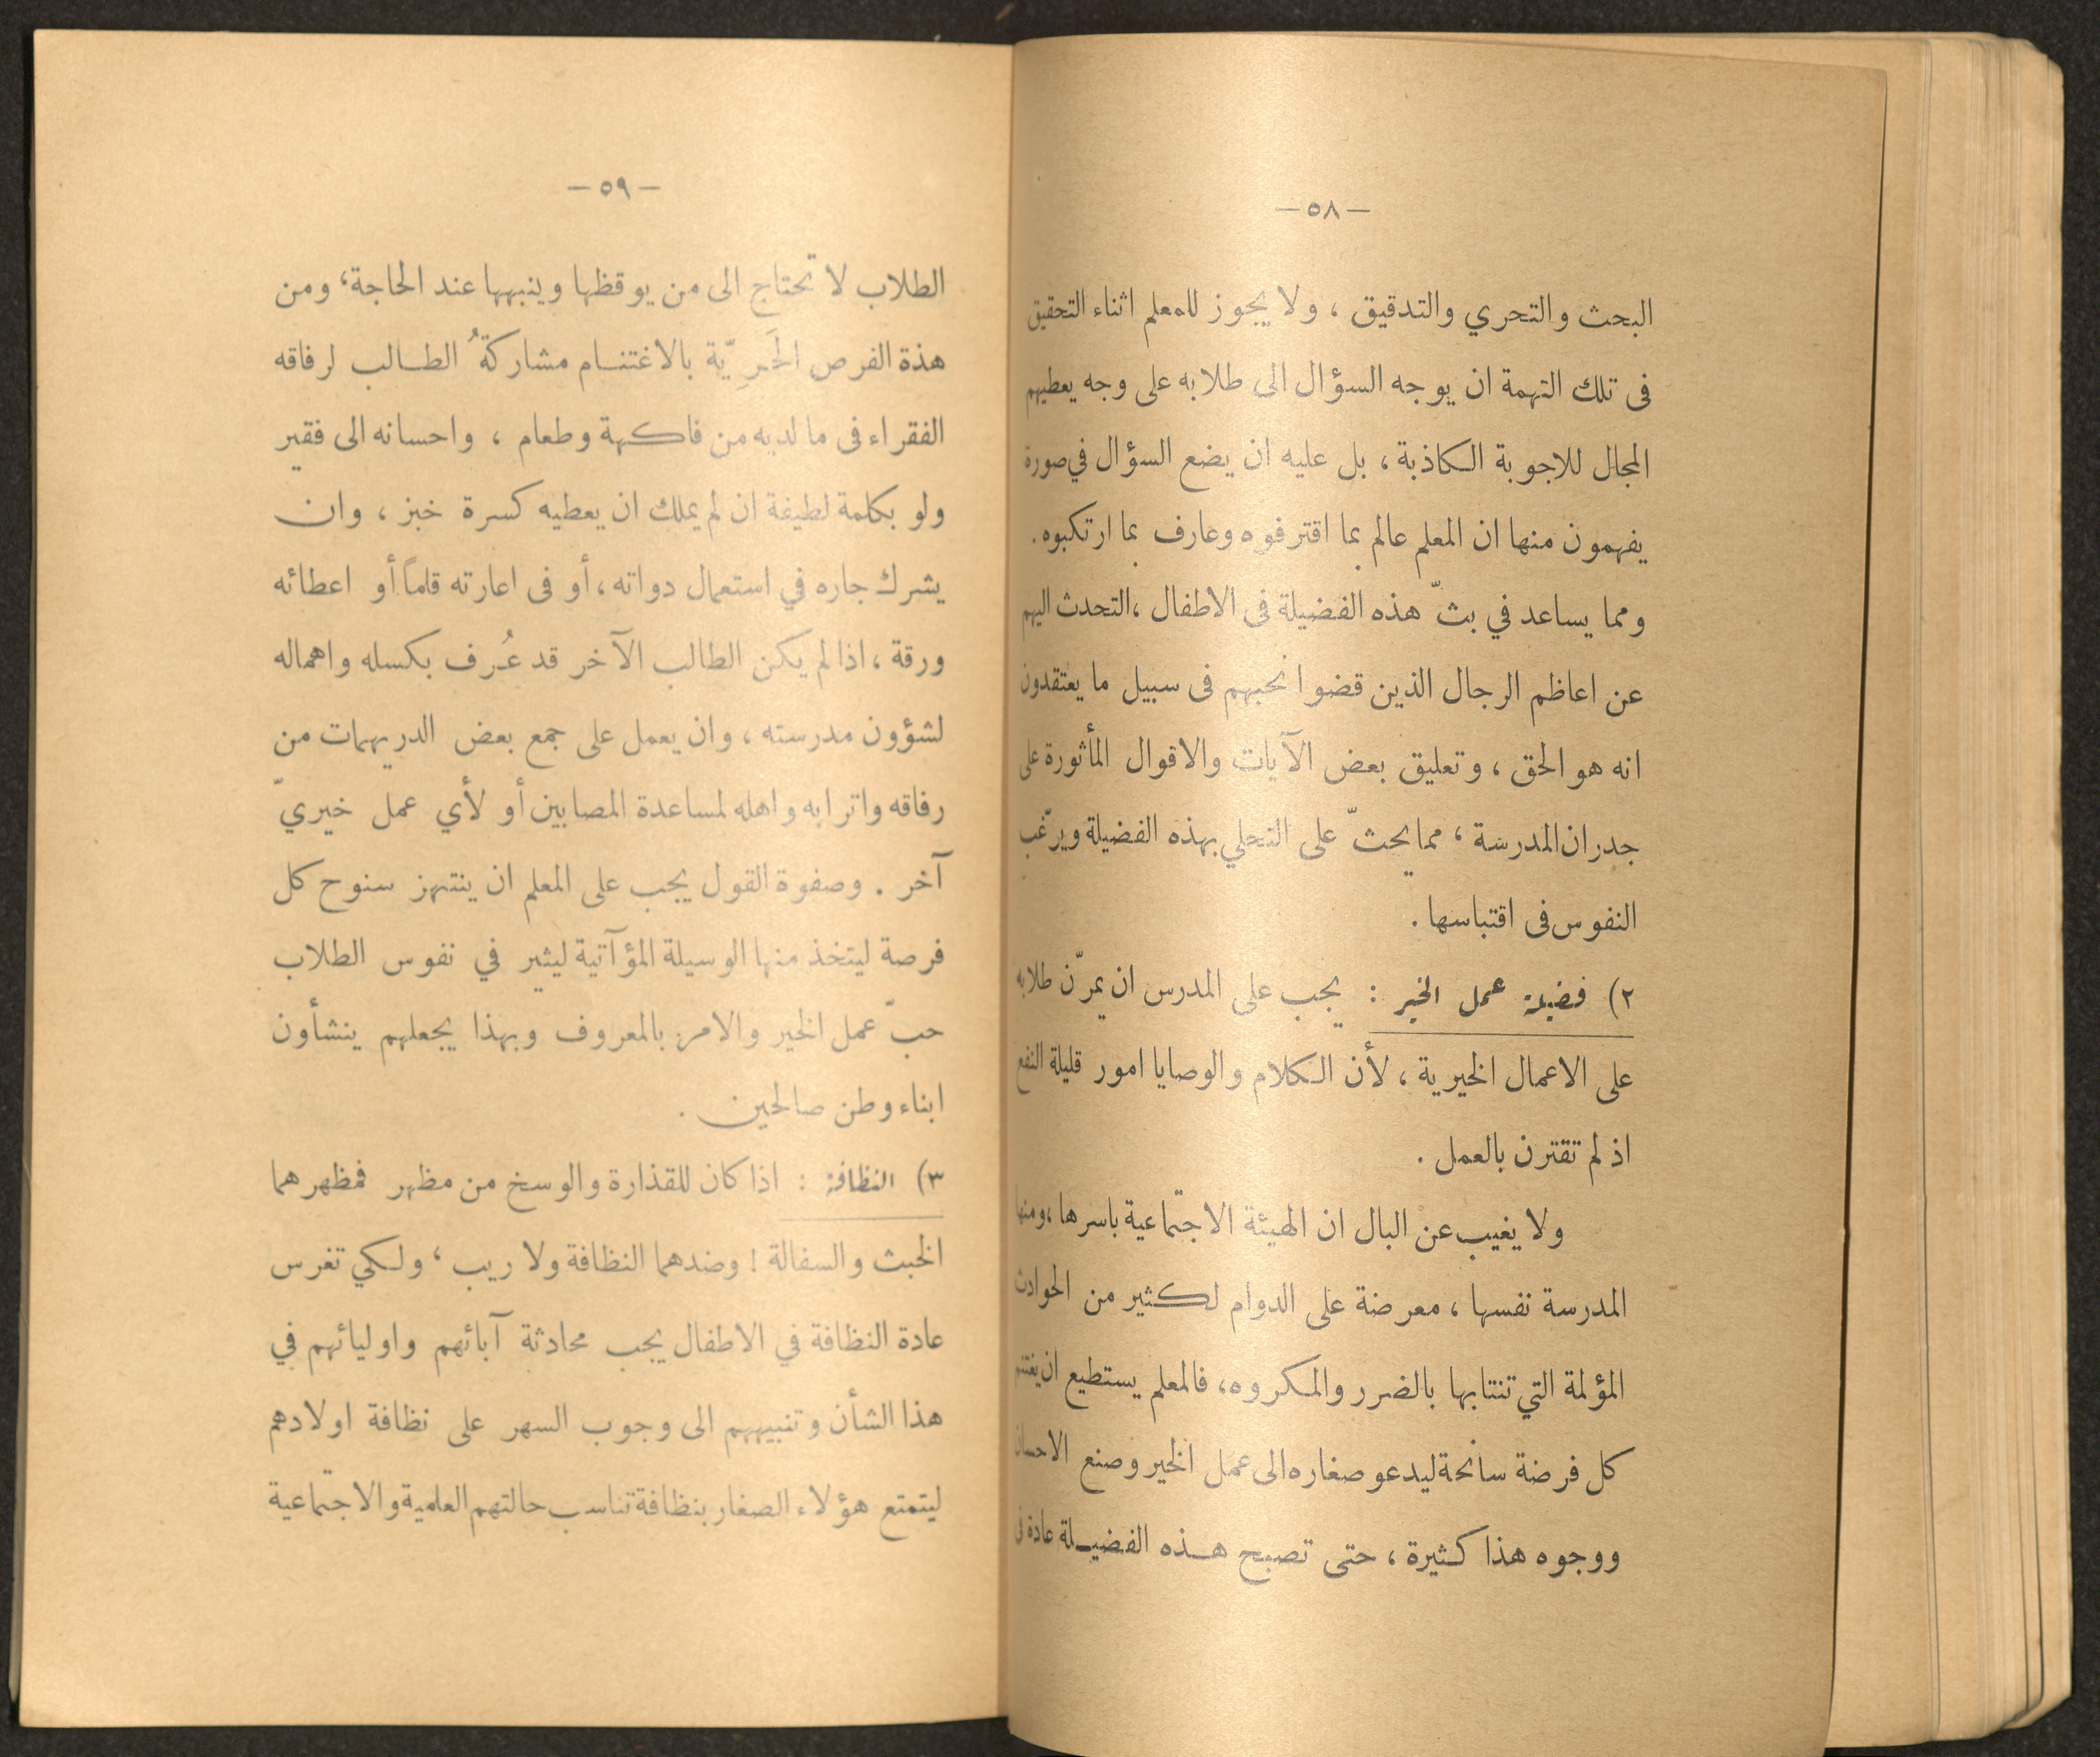 — ٥٨ —
البحث والتحري والتدقيق ، ولا يجوز للمعلم اثناء التحقيق
فى تلك التهمة ان يوجه السؤال الى طلابه على وجه يعطيهم
المجال للاجوبة الكاذبة ، بل عليه ان يضع السؤال في صورة
يفهمون منها ان المعلم عالم بما اقترفوه وعارف بما ارتكبوه .
ومما يساعد في بثّ هذه الفضيلة فى الاطفال ، التحدث اليهم
عن اعاظم الرجال الذين قضوا نحبهم فى سبيل ما يعتقدون
انه هو الحق ، وتعليق بعض الآيات والاقوال المأثورة على
جدران المدرسة ، مما يحثّ على التحلي بهذه الفضيلة ويرّغب
النفوس فى اقتباسها .
٢) فضيلة عمل الخير : يجب على المدرس ان يمرّن طلابه
على الاعمال الخيرية ، لأن الكلام والوصايا امور قليلة النفع
اذ لم تقترن بالعمل .
ولا يغيب عن البال ان الهيئة الاجتماعية باسرها ، ومنها
المدرسة نفسها ، معرضة على الدوام لكثير من الحوادث
المؤلمة التي تنتابها بالضرر والمكروه ، فالمعلم يستطيع ان يغتنم
كل فرصة سانحة ليدعو صغاره الى عمل الخير وصنع الاحسان
ووجوه هذا كثيرة ، حتى تصبح هذه الفضيلة عادة فى
— ٥٩ —
الطلاب لا تحتاج الى من يوقظها وينبهها عند الحاجة ، ومن
هذة الفرص الحَرِيّة بالاغتنام مشاركةُ الطالب لرفاقه
الفقراء فى ما لديه من فاكهة وطعام ، واحسانه الى فقير
ولو بكلمة لطيفة ان لم يملك ان يعطيه كسرة خبز ، وان
يشرك جاره في استعمال دواته ، أو فى اعارته قلماً أو اعطائه
ورقة ، اذا لم يكن الطالب الآخر قد عُرف بكسله واهماله
لشؤون مدرسته ، وان يعمل على جمع بعض الدريهمات من
رفاقه واترابه واهله لمساعدة المصابين أو لأي عمل خيريّ
آخر . وصفوة القول يجب على المعلم ان ينتهز سنوح كل
فرصة ليتخذ منها الوسيلة المؤآتية ليثير في نفوس الطلاب
حبّ عمل الخير والامر بالمعروف وبهذا يجعلهم ينشأون
ابناء وطن صالحين .
٣) النظافة : اذا كان للقذارة والوسخ من مظهر فمظهرهما
الخبث والسفالة ! وضدهما النظافة ولا ريب ، ولكي تغرس
عادة النظافة في الاطفال يجب محادثة آبائهم واوليائهم في
هذا الشأن وتنبيههم الى وجوب السهر على نظافة اولادهم
ليتمتع هؤلاء الصغار بنظافة تناسب حالتهم العلمية والاجتماعية